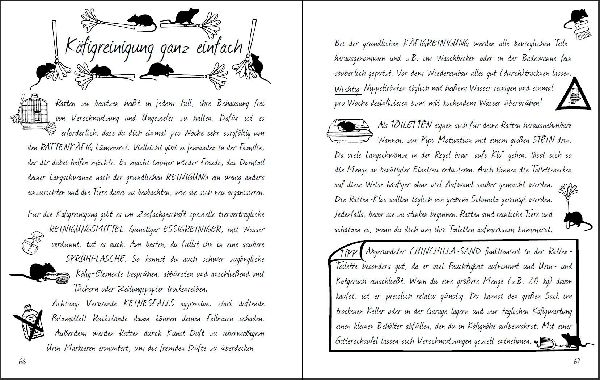 Käfigreinigung ganz einfach
Ratten zu besitzen heißt in jedem Fall, ihre Behausung frei
von Verschmutzung und Ungeziefer zu halten. Dafür ist es
erforderlich, dass du dich einmal pro Woche sehr sorgfältig um
den RATTENKÄFIG kümmerst. Vielleicht gibt es jemanden in der Familie,
der dir dabei helfen möchte. Es macht immer wieder Freude, das Domizil
deiner Langschwänze nach der gründlichen REINIGUNG ein wenig anders
einzurichten und die Tiere dann zu beobachten, wie sie sich neu organisieren.
Für die Käfigreinigung gibt es im Zoofachgeschäft spezielle tierverträgliche
REINIGUNGSMITTEL. Günstiger ESSIGREINIGER, mit Wasser
verdünnt, tut es auch. Am besten, du füllst ihn in eine saubere
SPRÜHFLASCHE. So kannst du auch schwer zugängliche
Käfig-Elemente besprühen, abbürsten und anschließend mit
Tüchern oder Zeitungspapier trockenreiben.
Achtung: Verwende KEINESFALLS aggressive, stark duftende
Putzmittel! Rückstände davon können deinen Fellnasen schaden.
Außerdem werden Ratten durch Kunst-Duft zu übermäßigem
Urin-Markieren ermuntert, um die fremden Düfte zu überdecken.
66
Bei der gründlichen KÄFIGREINIGUNG werden alle beweglichen Teile
herausgenommen und z.B. im Waschbecken oder in der Badewanne fein
säuberlich geputzt. Vor dem Wiedereinbau alles gut (durch)trocknen lassen.
Wichtig: Nippeltränken täglich mit heißem Wasser reinigen und einmal
pro Woche desinfizieren bzw. mit kochendem Wasser überbrühen!
Als TOILETTEN eignen sich für deine Ratten herausnehmbare
Wannen, zur Pipi-Motivation mit einem großen STEIN darin.
Da viele Langschwänze in der Regel brav "aufs Klo" gehen, lässt sich so
die Menge an benötigter Einstreu reduzieren. Auch können die Toilettenecken
auf diese Weise häufiger ohne viel Aufwand sauber gemacht werden.
Die Ratten-Klos sollten täglich von gröberem Schmutz gereinigt werden.
Jedenfalls, bevor sie zu stinken beginnen. Ratten sind reinliche Tiere und
schätzen es, wenn du dich um ihre Toiletten aufmerksam kümmerst.
TIPP: Abgerundeter CHINCHILLA-SAND funktioniert in der Ratten-
Toilette besonders gut, da er viel Feuchtigkeit aufnimmt und Urin- und
Kotgeruch einschließt. Wenn du eine größere Menge (z.B. 25 kg) davon
kaufst, ist er preislich relativ günstig. Du kannst den großen Sack im
trockenen Keller oder in der Garage lagern und zur täglichen Käfigwartung
einen kleinen Behälter abfüllen, den du in Käfignähe aufbewahrst. Mit einer
Gitterschaufel lassen sich Verschmutzungen gezielt entnehmen.
67